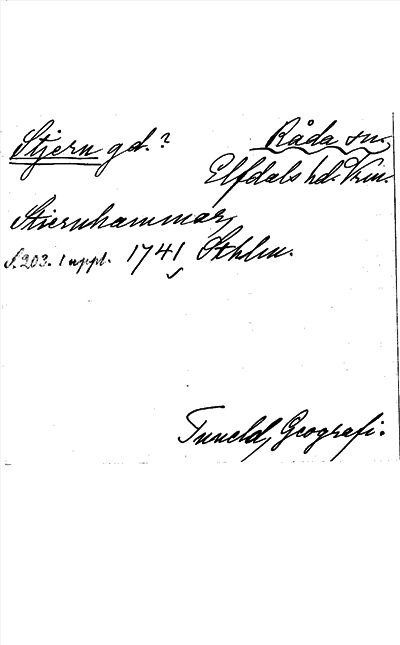 Stjern gd.?
Råda sn.,
Elfdals hd. Vrm.
Stiernhammar,
S. 203. 1 uppl. 1741 Sthlm.
Tuneld, Geografi.